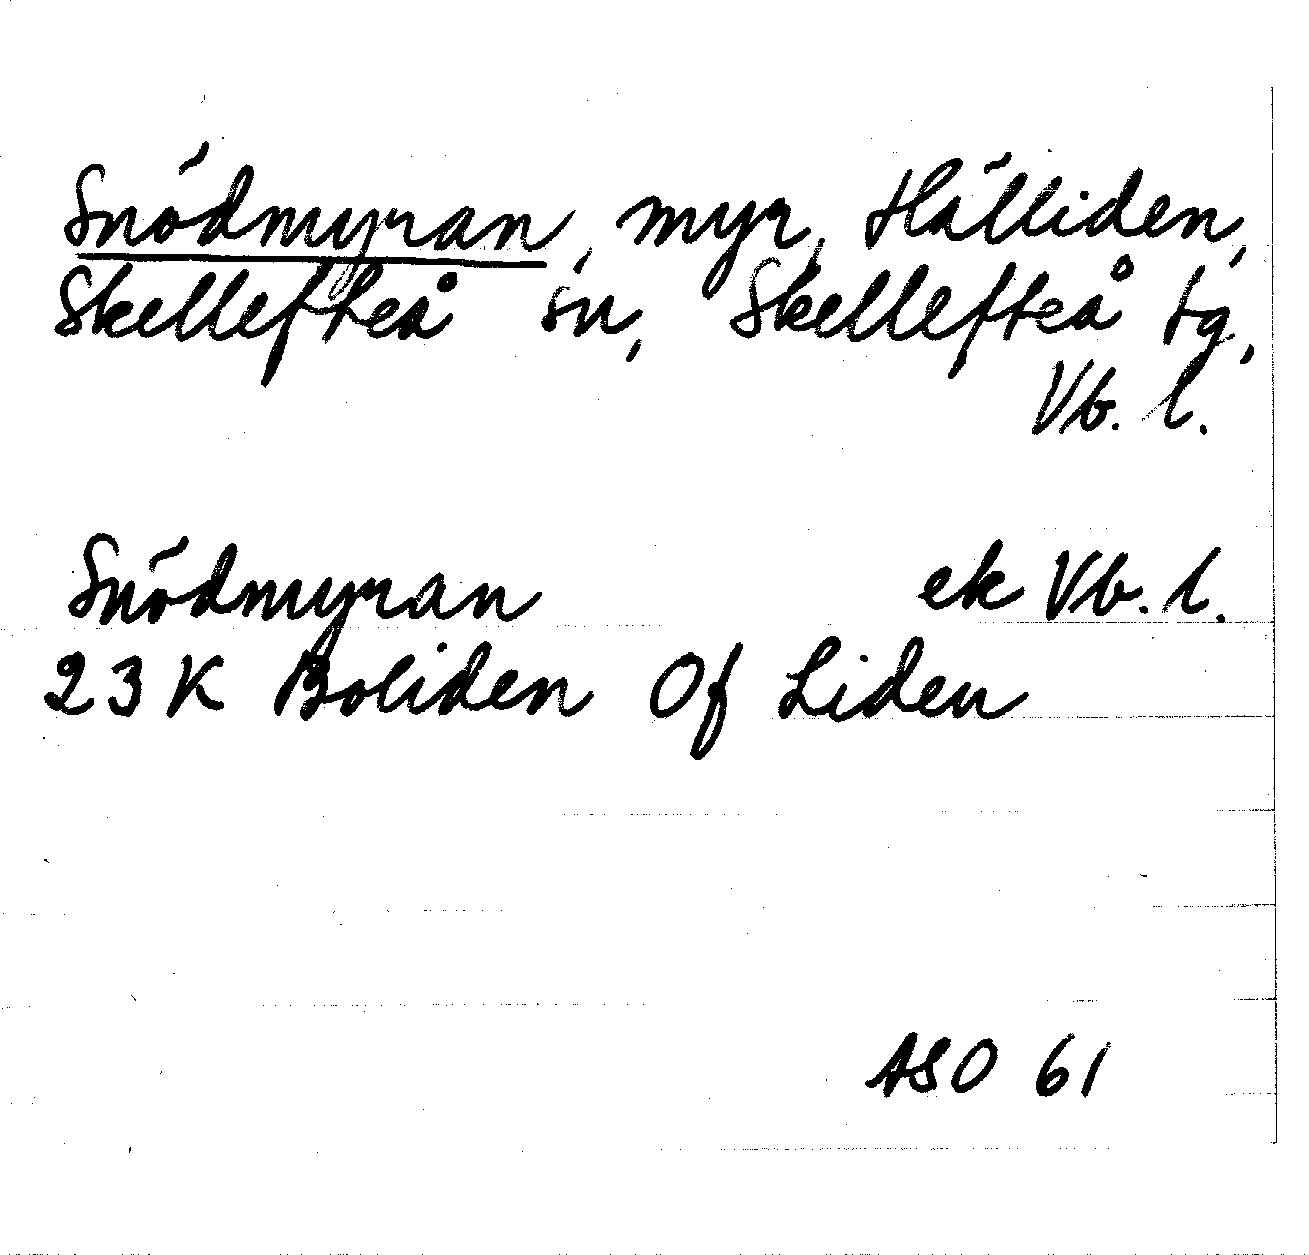 Snödmyran, myr, Hälliden,
Skellefteå sn, Skellefteå tg,
Vb. l.
Snödmyran ek Vb. l.
23 K Boliden Of Liden
ASO 61